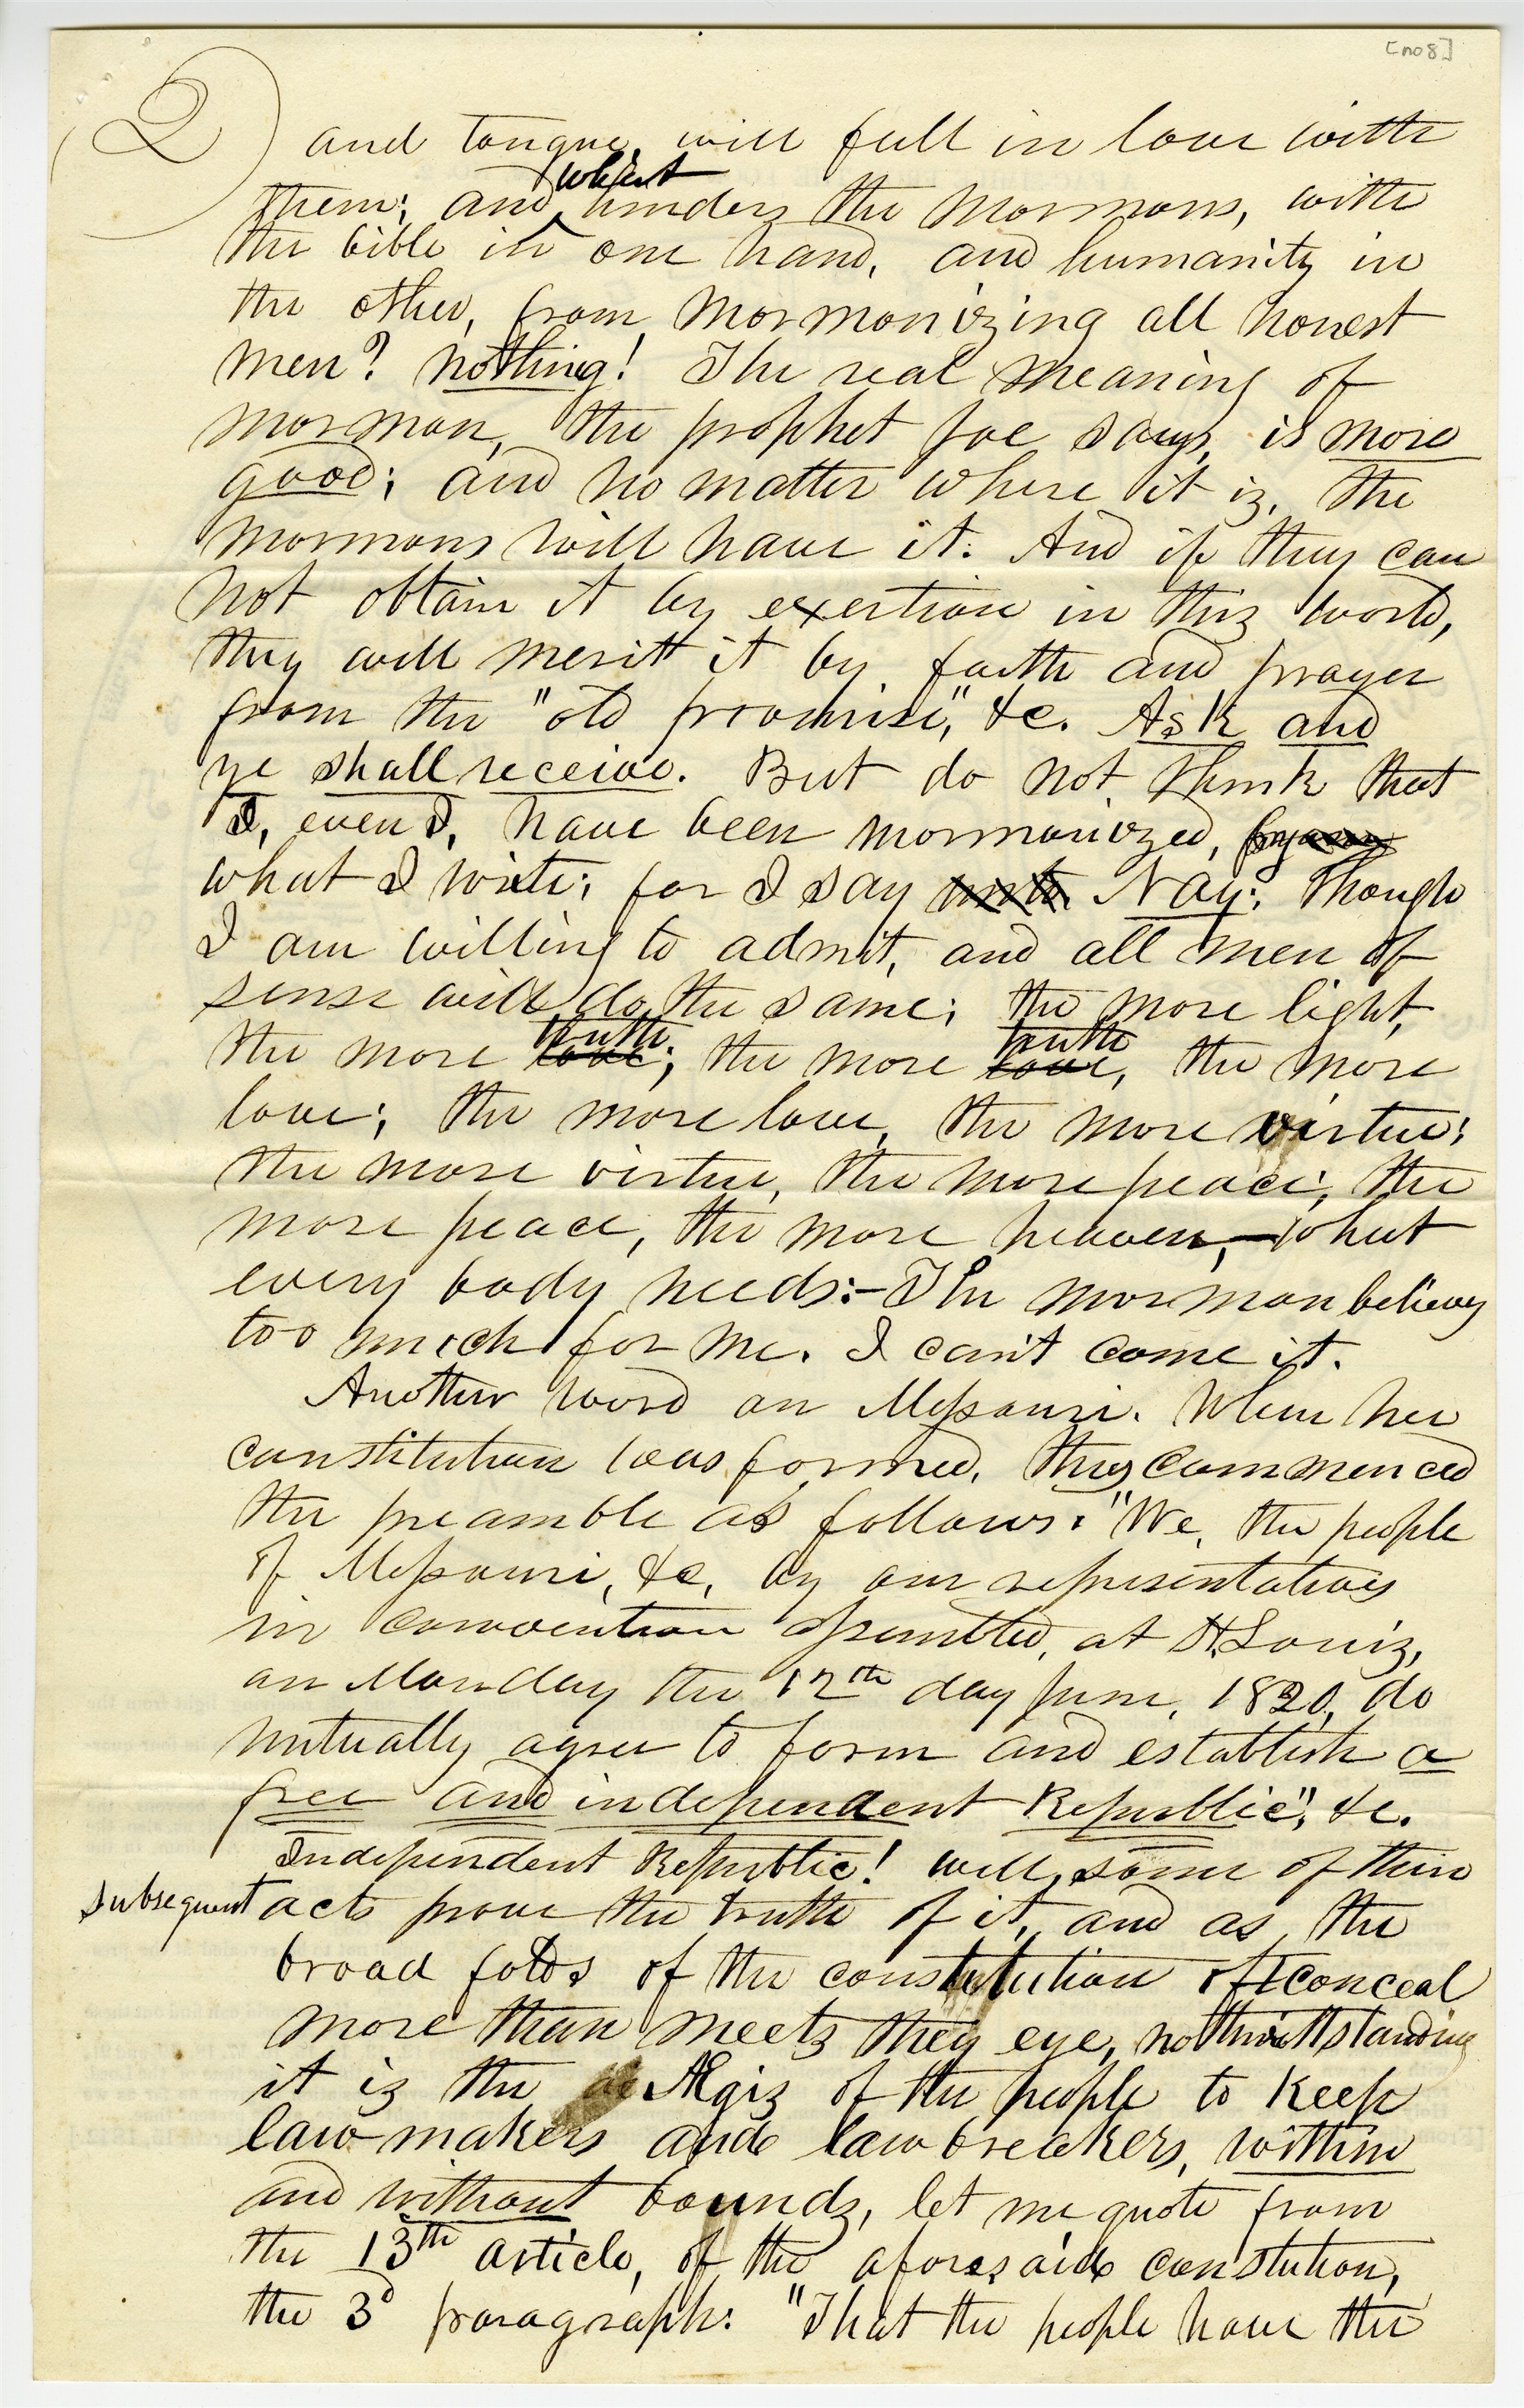 [no 8]
2) and tongue, will fall in love with
what
them; and hinders the Mormons, with
the bible in one hand, and humanity in
the other, from Mormonizing all honest
men? nothing! The real meaning of
mormon, the prophet Joe says, is more
good; and no matter where it iz, the
mormons will have it. And if they can
not obtain it by exertion in thiz world,
they will merit it by faith and prayer
from the "old promise," &c. Ask and
ye shall receive. But do not think that
I, even I, have been mormonized, by
what I write; for I say Nay: Though
I am willing to admit, and all men of
sense will do the same; the more light,
truth truth
the more love; the more love, the more
love; the more love, the more virtue;
the more virtue, the more peace; the
more peace, the more heaven,—what
every body needs:—The mormon believes
too much for me. I can't come it.
Another word on Missouri. When her
constitution was formed, they commenced
the preamble as follows: "We, the people
of Missouri, &c, by our representatives
in convention assembled, at St. Louiz,
on Monday the 12th day June, 1820, do
mutually agree to form and establish a
free and independent Republic", &c.
Independent Republic! will some of their
subsequent acts prove the truth of it, and as the
broad folds of the constitution oft conceal
more than meets they eye, nothwithstanding
it iz the Ægiz of the people to keep
law-makers and law breakers, within
and without boundz, let me quote from
the 13th article, of the aforesaid constution,
the 3d paragraph: "That the people have the